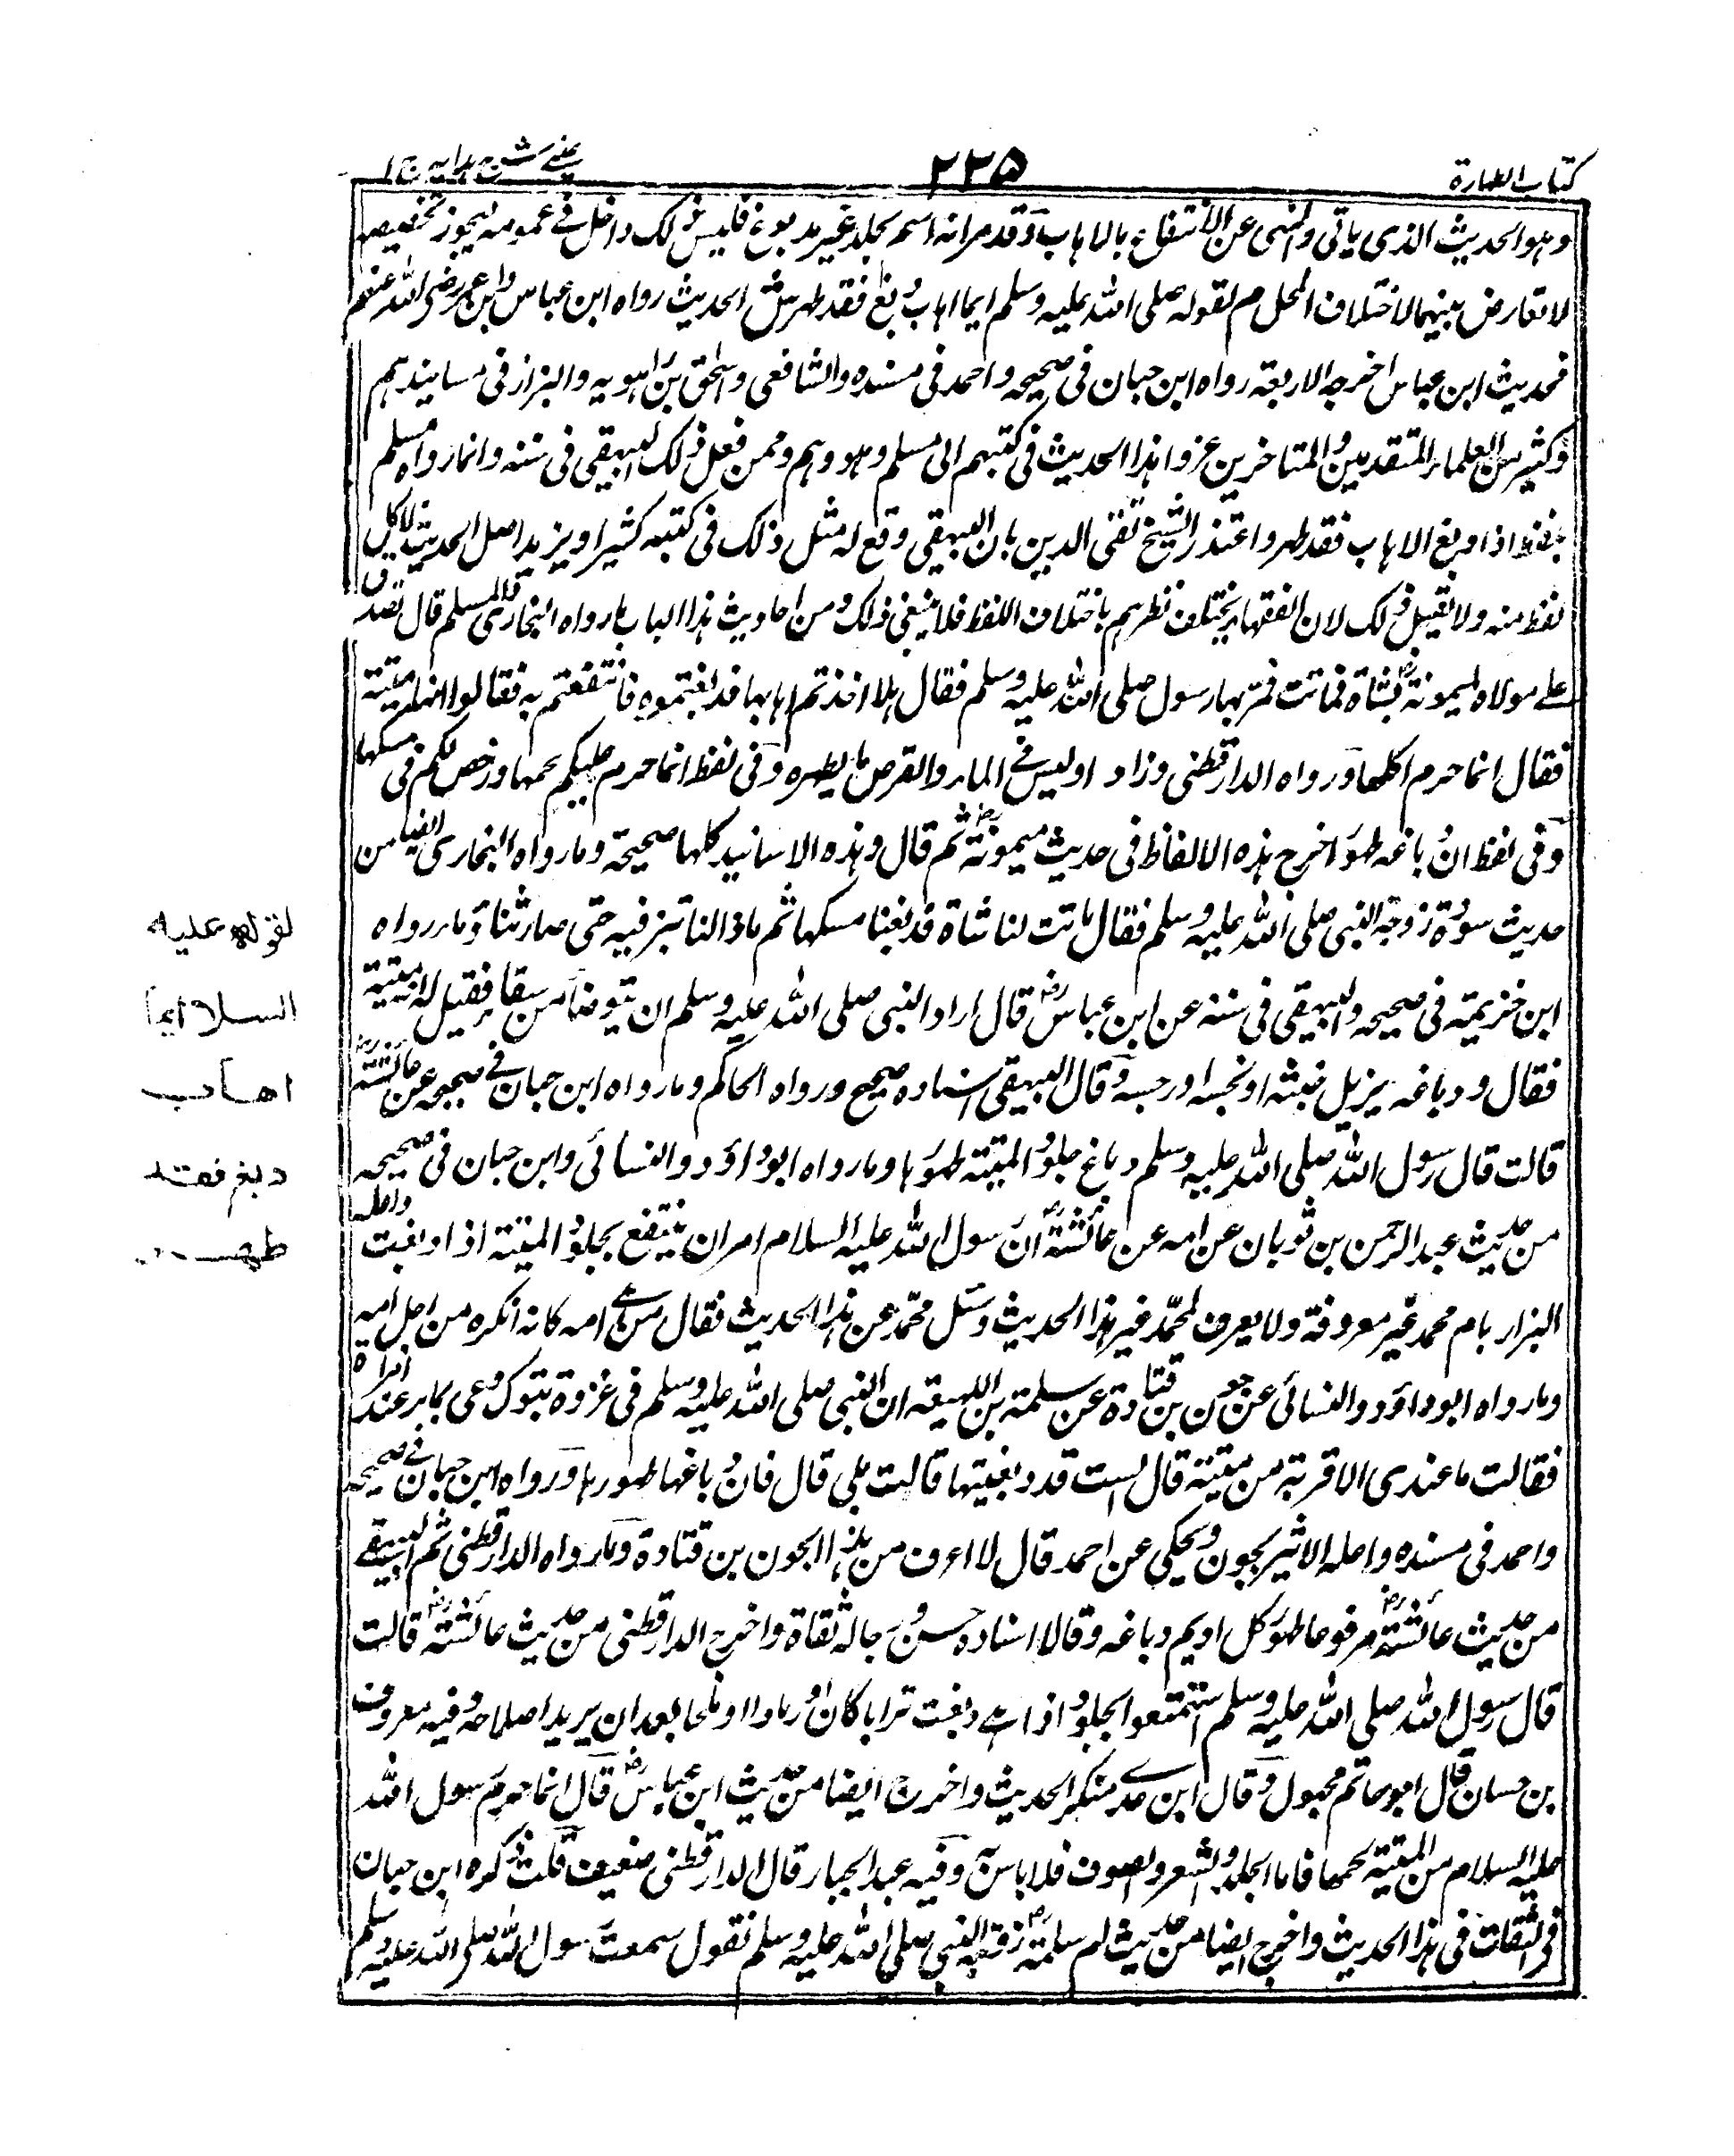 كتاب الطهارة
٢٢٥
عيني شرح هدايه ج ١
وهو الحديث الذي ياتي والنهي عن الانتفاع بالاهاب وقد مر انه اسم لجلد غير مدبوغ فليس ذلك داخل في عمومه ليجوز تخصيصه
لا تعارض بينهما لاختلاف المحل م لقوله صلى الله عليه وسلم ايما اهاب دبغ فقد طهر ش الحديث رواه ابن عباس وابن عمر رضي الله عنهم
فحديث ابن عباس اخرجه الاربعة رواه ابن حبان في صحيحه واحمد في مسنده والشافعي واسحق بن راهويه والبزار في مسانيدهم
وكثير من العلماء المتقدمين والمتاخرين عزوا هذا الحديث في كتبهم الى مسلم وهو وهم وممن فعل ذلك البيهقي في سننه وانما رواه مسلم
بلفظ اذا دبغ الاهاب فقد طهر واعتذر الشيخ تقي الدين بان البيهقي وقع له مثل ذلك في كتبه كثيرا ويريد اصل الحديث لا كل
لفظ منه ولا يقبل ذلك لان الفقهاء يختلف نظرهم باختلاف اللفظ فلا ينبغي ذلك ومن احاديث هذا الباب ما رواه البخاري والمسلم قال تصدق
على مولاة لميمونة رض بشاة فماتت فمر بها رسول صلى الله عليه وسلم فقال هلا اخذتم اهابها فدبغتموه فانتفعتم به فقالوا انها ميتة
فقال انما حرم اكلها ورواه الدارقطني وزاد اوليس في الماء والقرض ما يطهره وفي لفظ انما حرم عليكم لحمها ورخص لكم في مسكها
وفي لفظ ان دباغه طهور اخرج هذه الالفاظ في حديث ميمونة رض ثم قال وهذه الاسانيد كلها صحيحة وما رواه البخاري ايضا من
حديث سودة زوجة النبي صلى الله عليه وسلم فقال ماتت لنا شاة فدبغنا مسكها ثم ما ذالنا نبتز فيه حتى صار شنا وما رواه
ابن خزيمة في صحيحه والبيهقي في سننه عن ابن عباس رض قال اراد النبي صلى الله عليه وسلم ان يتوضأ من سقاء فقيل له انه ميتة
فقال ودباغه يزيل خبثه او نجسه او رجسه وقال البيهقي اسناده صحيح ورواه الحاكم وما رواه ابن حبان في صحيحه عن عائشة رض
قالت قال رسول الله صلى الله عليه وسلم دباغ جلود الميتة طهورها وما رواه ابو داؤد والنسائي وابن حبان في صحيحه
من حديث عبد الرحمن بن ثوبان عن امه عن عائشة رض ان رسول الله عليه السلام امر ان ينتفع بجلود الميتة اذا دبغت واعله
البزار بام محمد غير معروفة ولا يعرف لمحمد غير هذا الحديث وسئل محمد عن هذا الحديث فقال من هي امه كانه انكره من اجل امه
وما رواه ابو داؤد والنسائي عن جون بن قتادة عن سلمة بن المحبق ان النبي صلى الله عليه وسلم في غزوة تبوك دعى بماء عند امراة
فقالت ما عندي الا قربة من ميتة قال الست قد دبغيتها قالت بلى قال فان دباغها طهورها ورواه ابن حبان في صحيحه
واحمد في مسنده واعله الاثير بجون وحكي عن احمد قال لا اعرف من هذا الجون بن قتادة وما رواه الدارقطني ثم البيهقي
من حديث عائشة رض مرفوعا طهور كل اديم دباغه وقالا اسناده حسن ورجاله ثقاة واخرج الدارقطني من حديث عائشة رض قالت
قال رسول الله صلى الله عليه وسلم استمتعوا بجلود اذا هي دبغت ترابا كان او رمادا او ملحا بعد ان يريد اصلاحه وفيه معروف
بن حسان قال ابو حاتم مجهول وقال ابن عدي منكر الحديث واخرج ايضا من حديث ابن عباس رض قال انما حرم رسول الله
عليه السلام من الميتة لحمها فاما الجلد والشعر والصوف فلا باس به وفيه عبد الجبار قال الدارقطني ضعيف قلت ذكره ابن حبان
في الثقات في هذا الحديث واخرج ايضا من حديث ام سلمة رض زوجة النبي صلى الله عليه وسلم تقول سمعت رسول الله صلى الله عليه وسلم
لقوله عليه
السلا ايما
اهاب
دبغ فقد
طهر